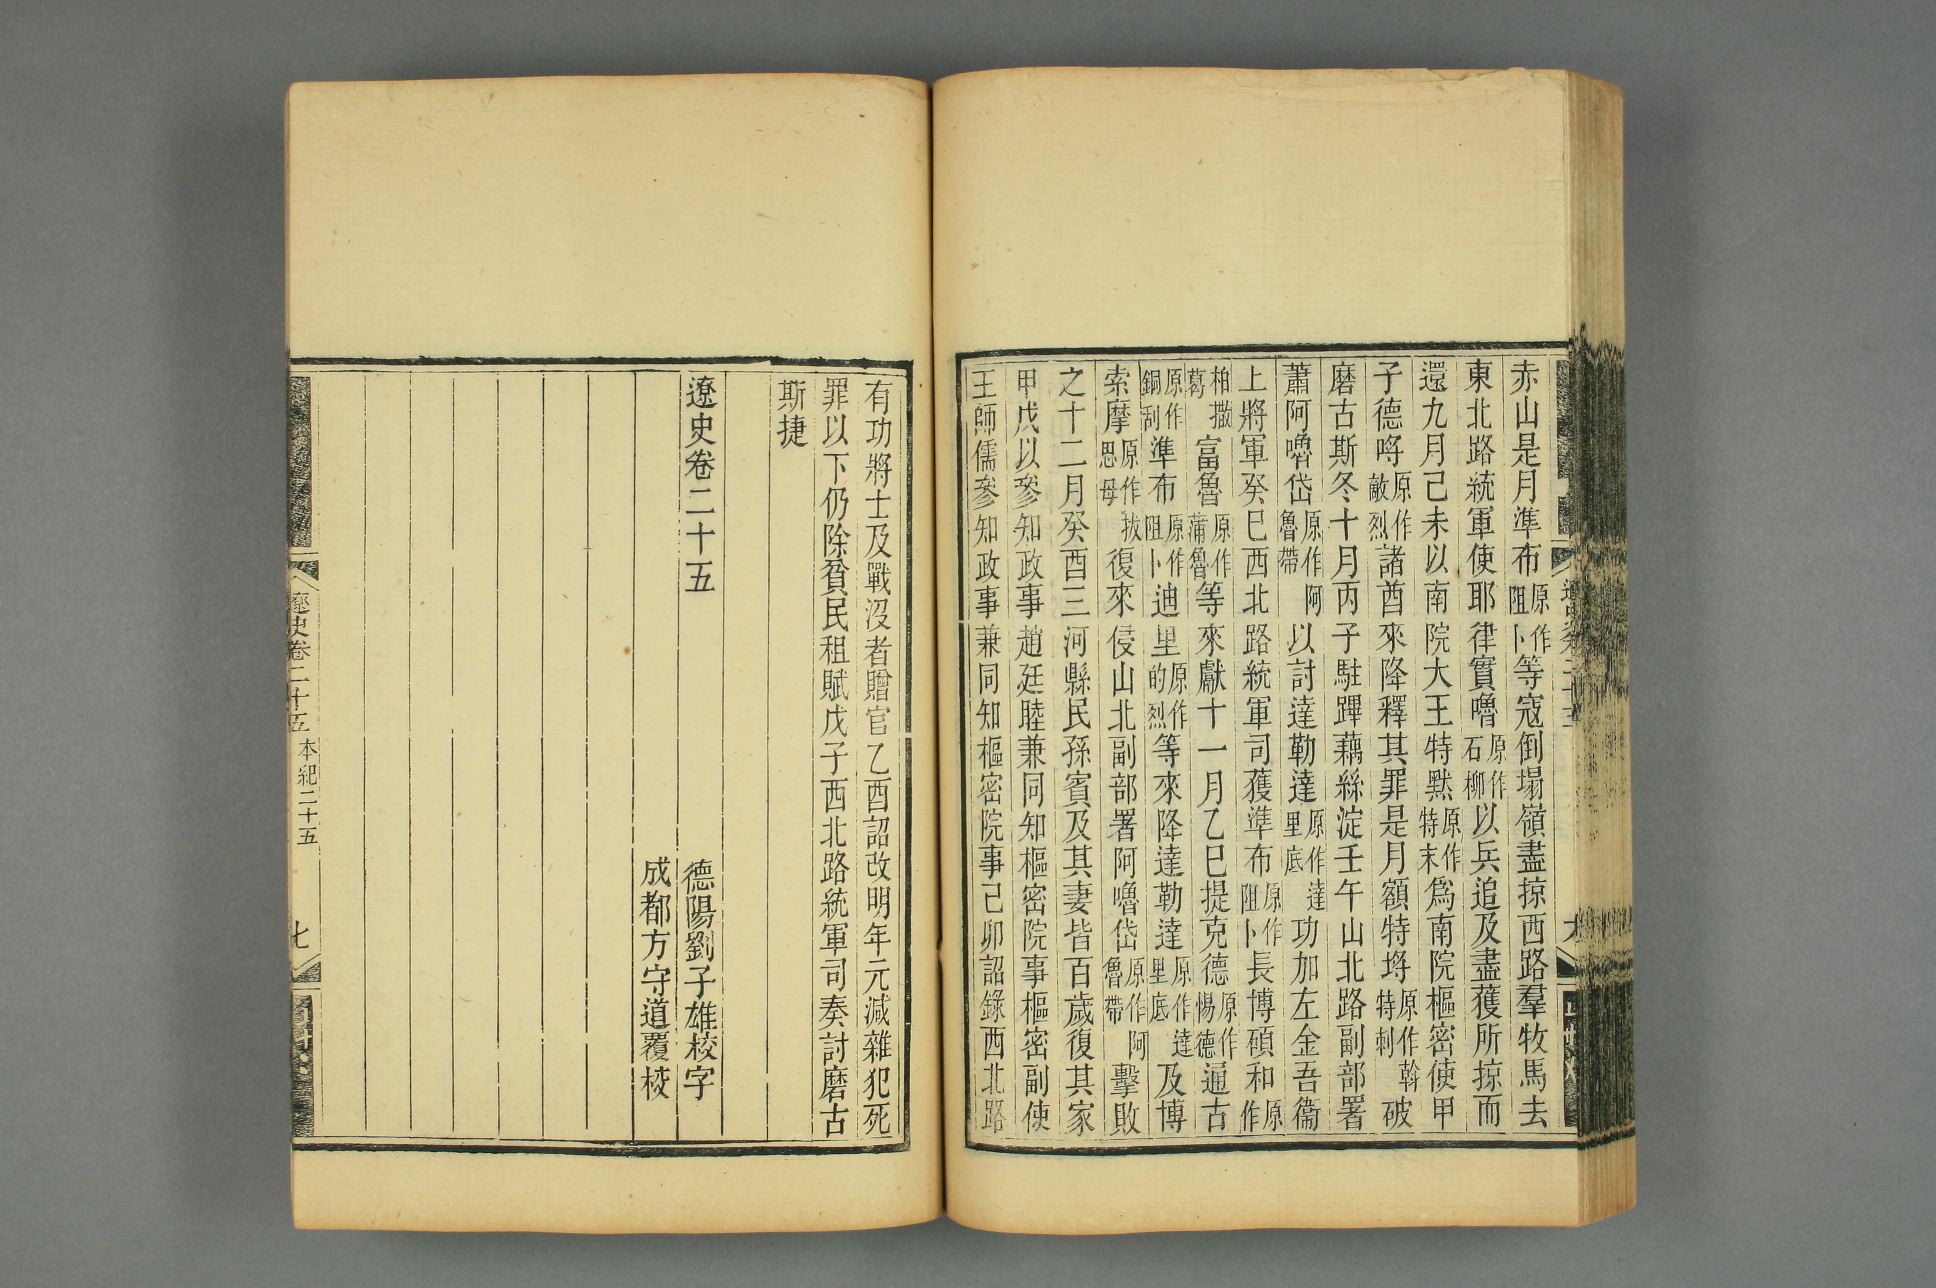 赤山是月準布原作阻卜等寇倒塌嶺盡掠西路羣牧馬去
東北路統軍使耶律實嚕原作石柳以兵追及盡獲所掠而
還九月己未以南院大王特默原作特末爲南院樞密使甲
子德哷原作敵烈諸酋來降釋其罪是月額特埒原作斡特剌破
磨古斯冬十月丙子駐蹕藕絲淀壬午山北路副部署
蕭阿嚕岱原作阿魯帶以討達勒達原作達里底功加左金吾衞
上將軍癸巳西北路統軍司獲準布原作阻卜長博碩和原作
柏撒葛富魯原作蒲魯等來獻十一月乙巳提克德原作惕德通古
原作銅刮準布原作阻卜迪里原作的烈等來降達勒達原作達里底及博
索摩原作拔思母復來侵山北副部署阿嚕岱原作阿魯帶擊敗
之十二月癸酉三河縣民孫賓及其妻皆百歲復其家
甲戊以參知政事趙廷睦兼同知樞密院事樞密副使
王師儒參知政事兼同知樞密院事己卯詔錄西北路
有功將士及戰沒者贈官乙酉詔改明年元減雜犯死
罪以下仍除貧民租賦戊子西北路統軍司奏討磨古
斯捷
遼史卷二十五
德陽劉子雄校字
成都方守道覆校
遼史卷二十五 本紀二十五 七